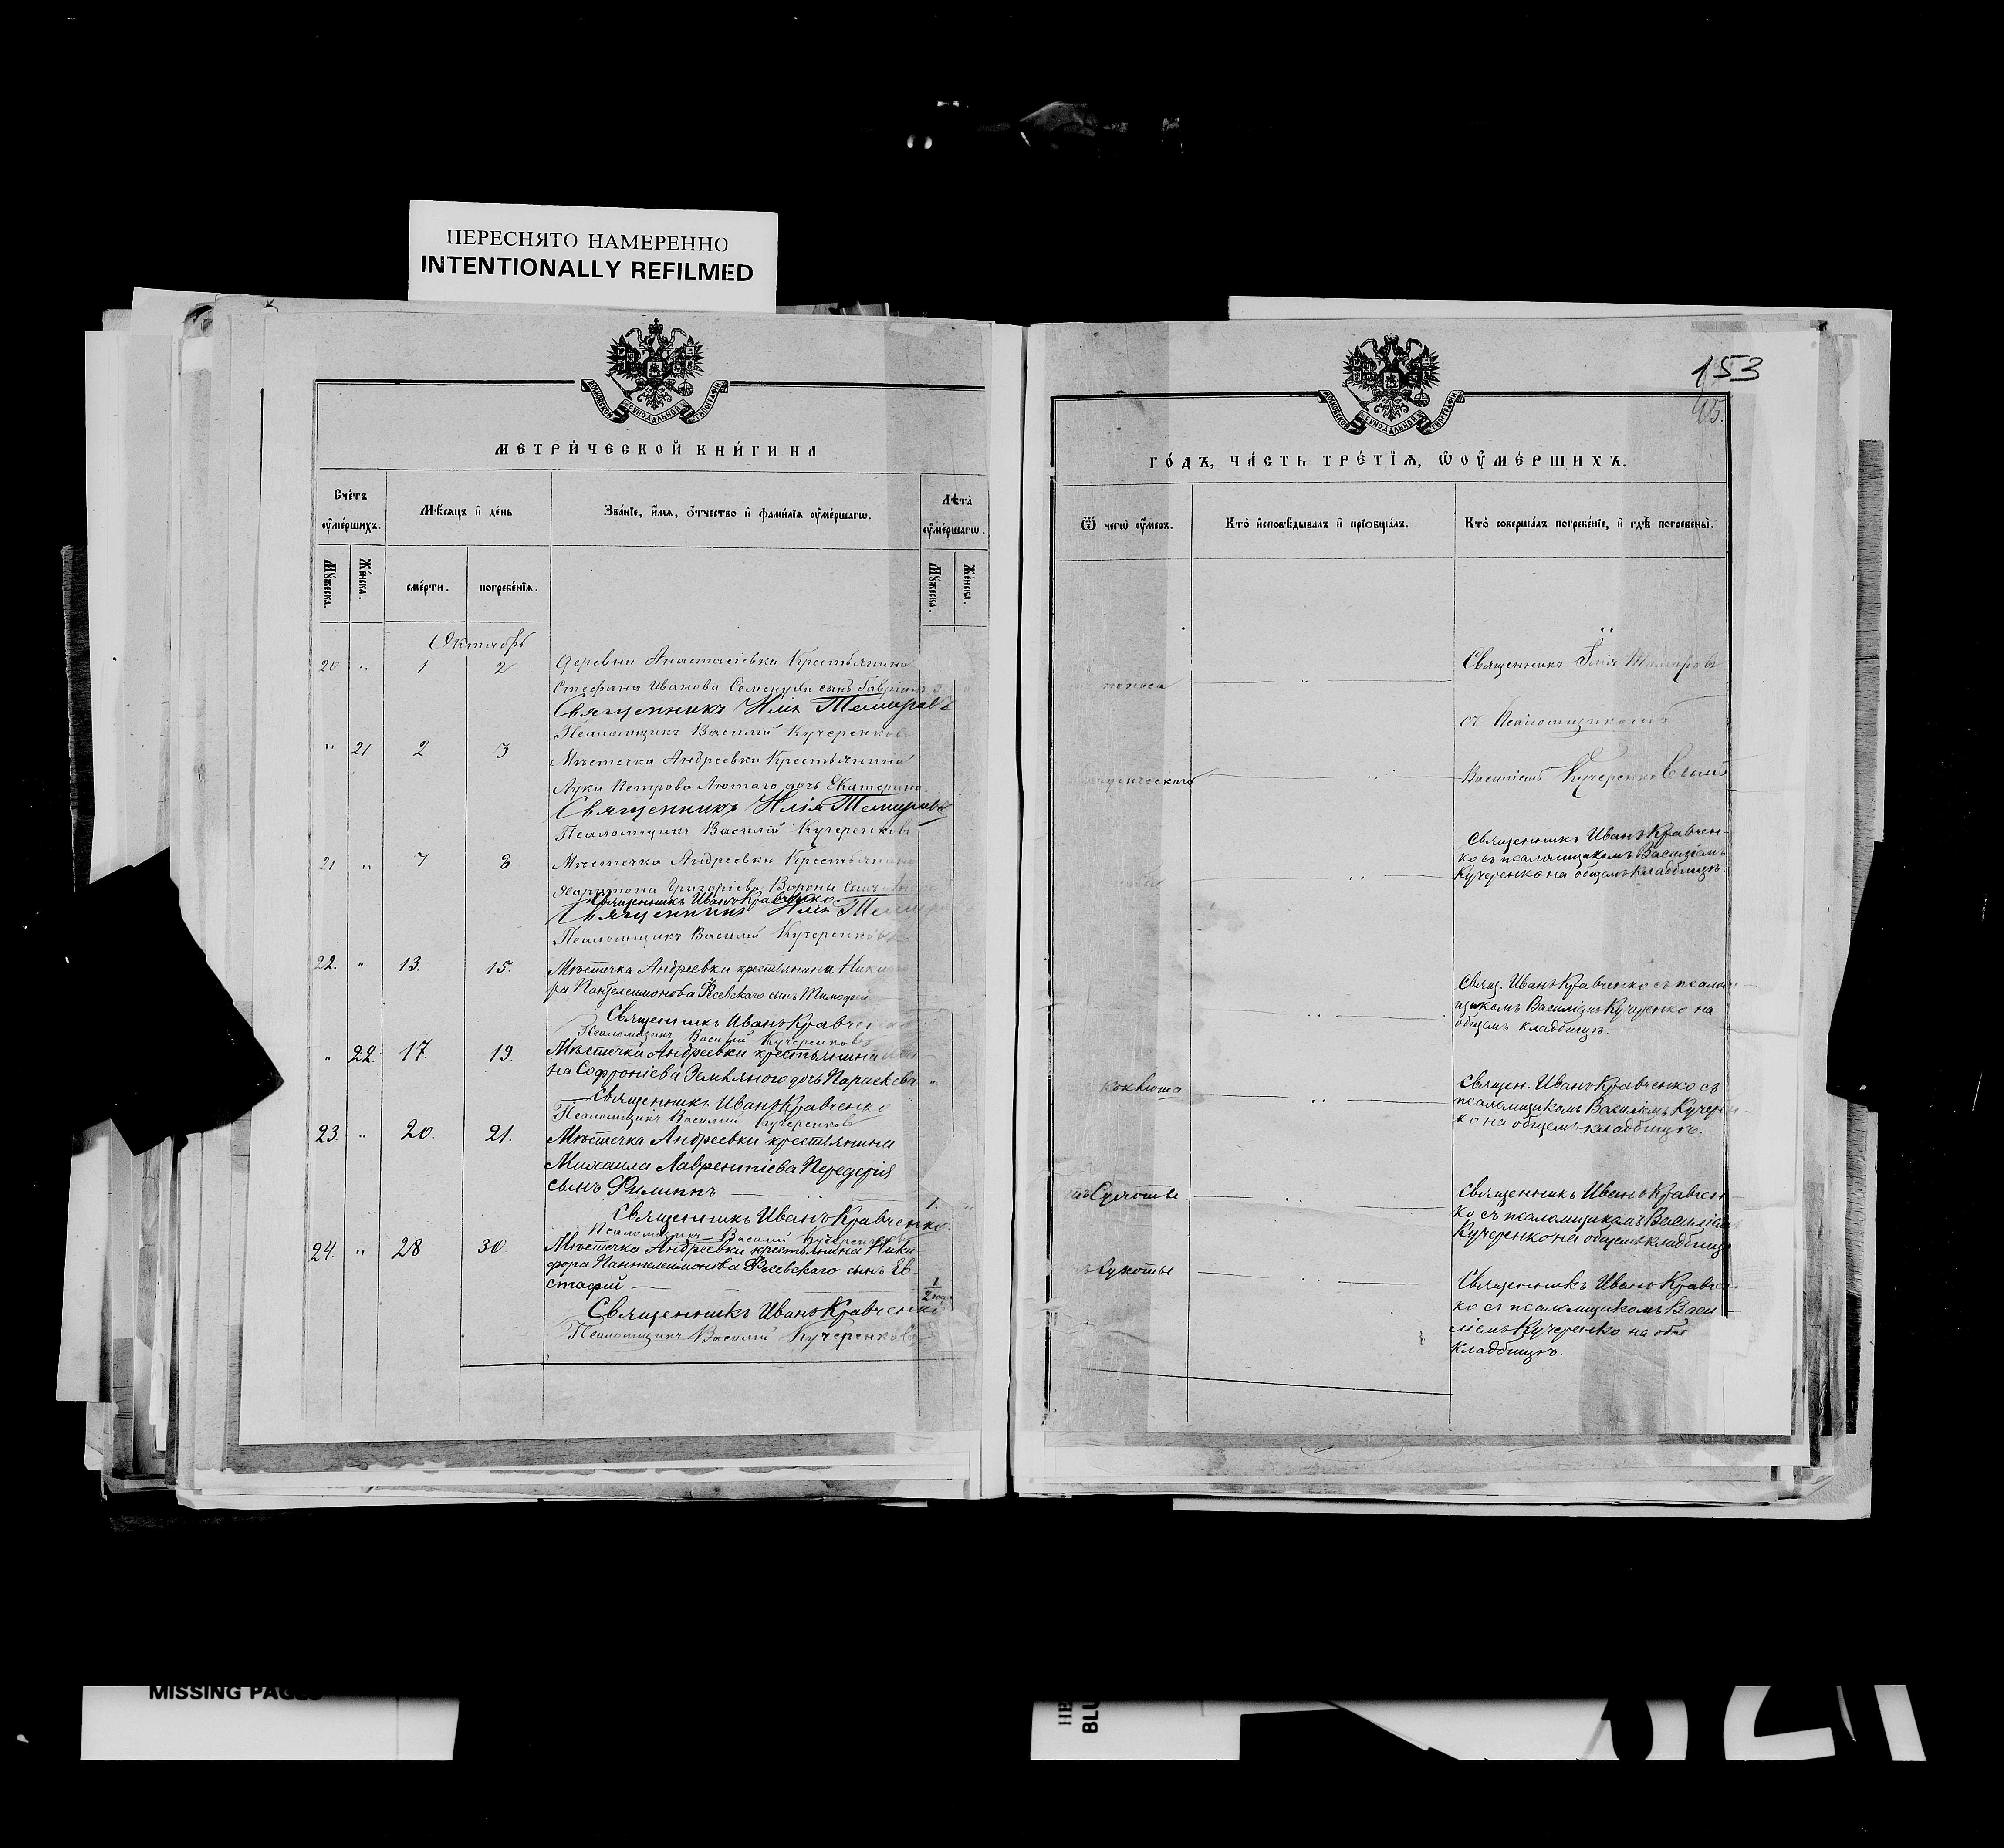 ПЕРЕСНЯТО НАМЕРЕННО
INTENTIONALLY REFILMED
МОСКОВСКОЙ СУНОДАЛЬНОЙ ТИПОГРАФІИ
МЕТРИ́ЧЕСКОЙ КНИ́ГИ НА
Сче́тъ ᲂу҆ме́ршихъ.
Мѣ́сяцъ и҆ де́нь
Зва́нїе, и҆́мя, ѻ҆́тчество и҆ фами́лїѧ ᲂу҆ме́ршагѡ.
Лѣ́та ᲂу҆ме́ршагѡ.
Мꙋ́жеска.
Же́нска.
сме́рти.
погребе́нїѧ.
Мꙋ́жеска.
Же́нска.
Октябрь
20 " 1 2 Деревни Анастасіевки Крестьянина
Стефана Иванова Семенухи сынъ Гавріилъ
Священникъ Илія Темировъ
Псаломщикъ Василій Кучеренковъ
" 21 2 3 Мѣстечка Андреевки Крестьянина
Луки Петрова Лютаго дочь Екатерина
Священникъ Илія Темировъ
Псаломщикъ Василій Кучеренковъ
21 " 7 8 Мѣстечка Андреевки Крестьянина
Харитона Григоріева Вороны сынъ
Священникъ Иванъ Кравченко.
Священникъ Илія
Псаломщикъ Василій Кучеренковъ
22. " 13. 15. Мѣстечка Андреевки крестьянина Никифо
ра Пантелеимонова Фесевскаго сынъ Тимофей
Священникъ Иванъ Кравченко
Псаломщикъ Василій Кучеренковъ
" 22. 17. 19. Мѣстечка Андреевки крестьянина
на Софроніева Замѣяного дочь Параскева "
Священникъ Иванъ Кравченко
Псаломщикъ Василій Кучеренковъ
23. " 20. 21. Мѣстечка Андреевки крестьянина
Михаила Лаврентіева Передерія
сынъ Филиппъ 1. "
Священникъ Иванъ Кравченко
Псаломщикъ Василій Кучеренковъ
24. " 28 30 Мѣстечка Андреевки крестьянина Ники
фора Пантелеимонова Фесевскаго сынъ Ев-
стафій 1/2 года
Священникъ Иванъ Кравченко
Псаломщикъ Василій Кучеренковъ
153
МОСКОВСКОЙ СУНОДАЛЬНОЙ ТИПОГРАФІИ
ГО́ДЪ, ЧА́СТЬ ТРЕ́ТЇѦ, Ѡ҆ ᲂУ҆МЕ́РШИХЪ.
Ѿ чегѡ̀ ᲂу҆́меръ.
Кто̀ и҆сповѣ́дывалъ и҆ прїѻбща́лъ.
Кто̀ соверша́лъ погребе́нїе, и҆ гдѣ̀ погребены̀.
поноса
Священникъ Илія Темировъ
съ Псаломщикомъ
Василіемъ Кучеренковымъ
Священникъ Иванъ Кравчен-
ко съ псаломщикомъ Василіемъ
Кучеренко на общемъ кладбищѣ.
Свящ. Иванъ Кравченко съ псалом-
щикомъ Василіемъ Кучеренко на
общемъ кладбищѣ.
Коклюша
Священ. Иванъ Кравченко съ
псаломщикомъ Василіемъ Кучерен-
ко на общемъ кладбищѣ.
Сухотье
Священникъ Иванъ Кравчен-
ко съ псаломщикомъ Василіемъ
Кучеренко на общемъ кладбищѣ
Сухотье
Священникъ Иванъ Кравчен-
ко съ псаломщикомъ Васи-
ліемъ Кучеренко на общ
кладбищѣ.
MISSING PAGES